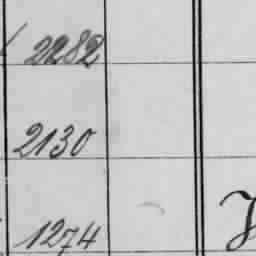 2282
2130
1274